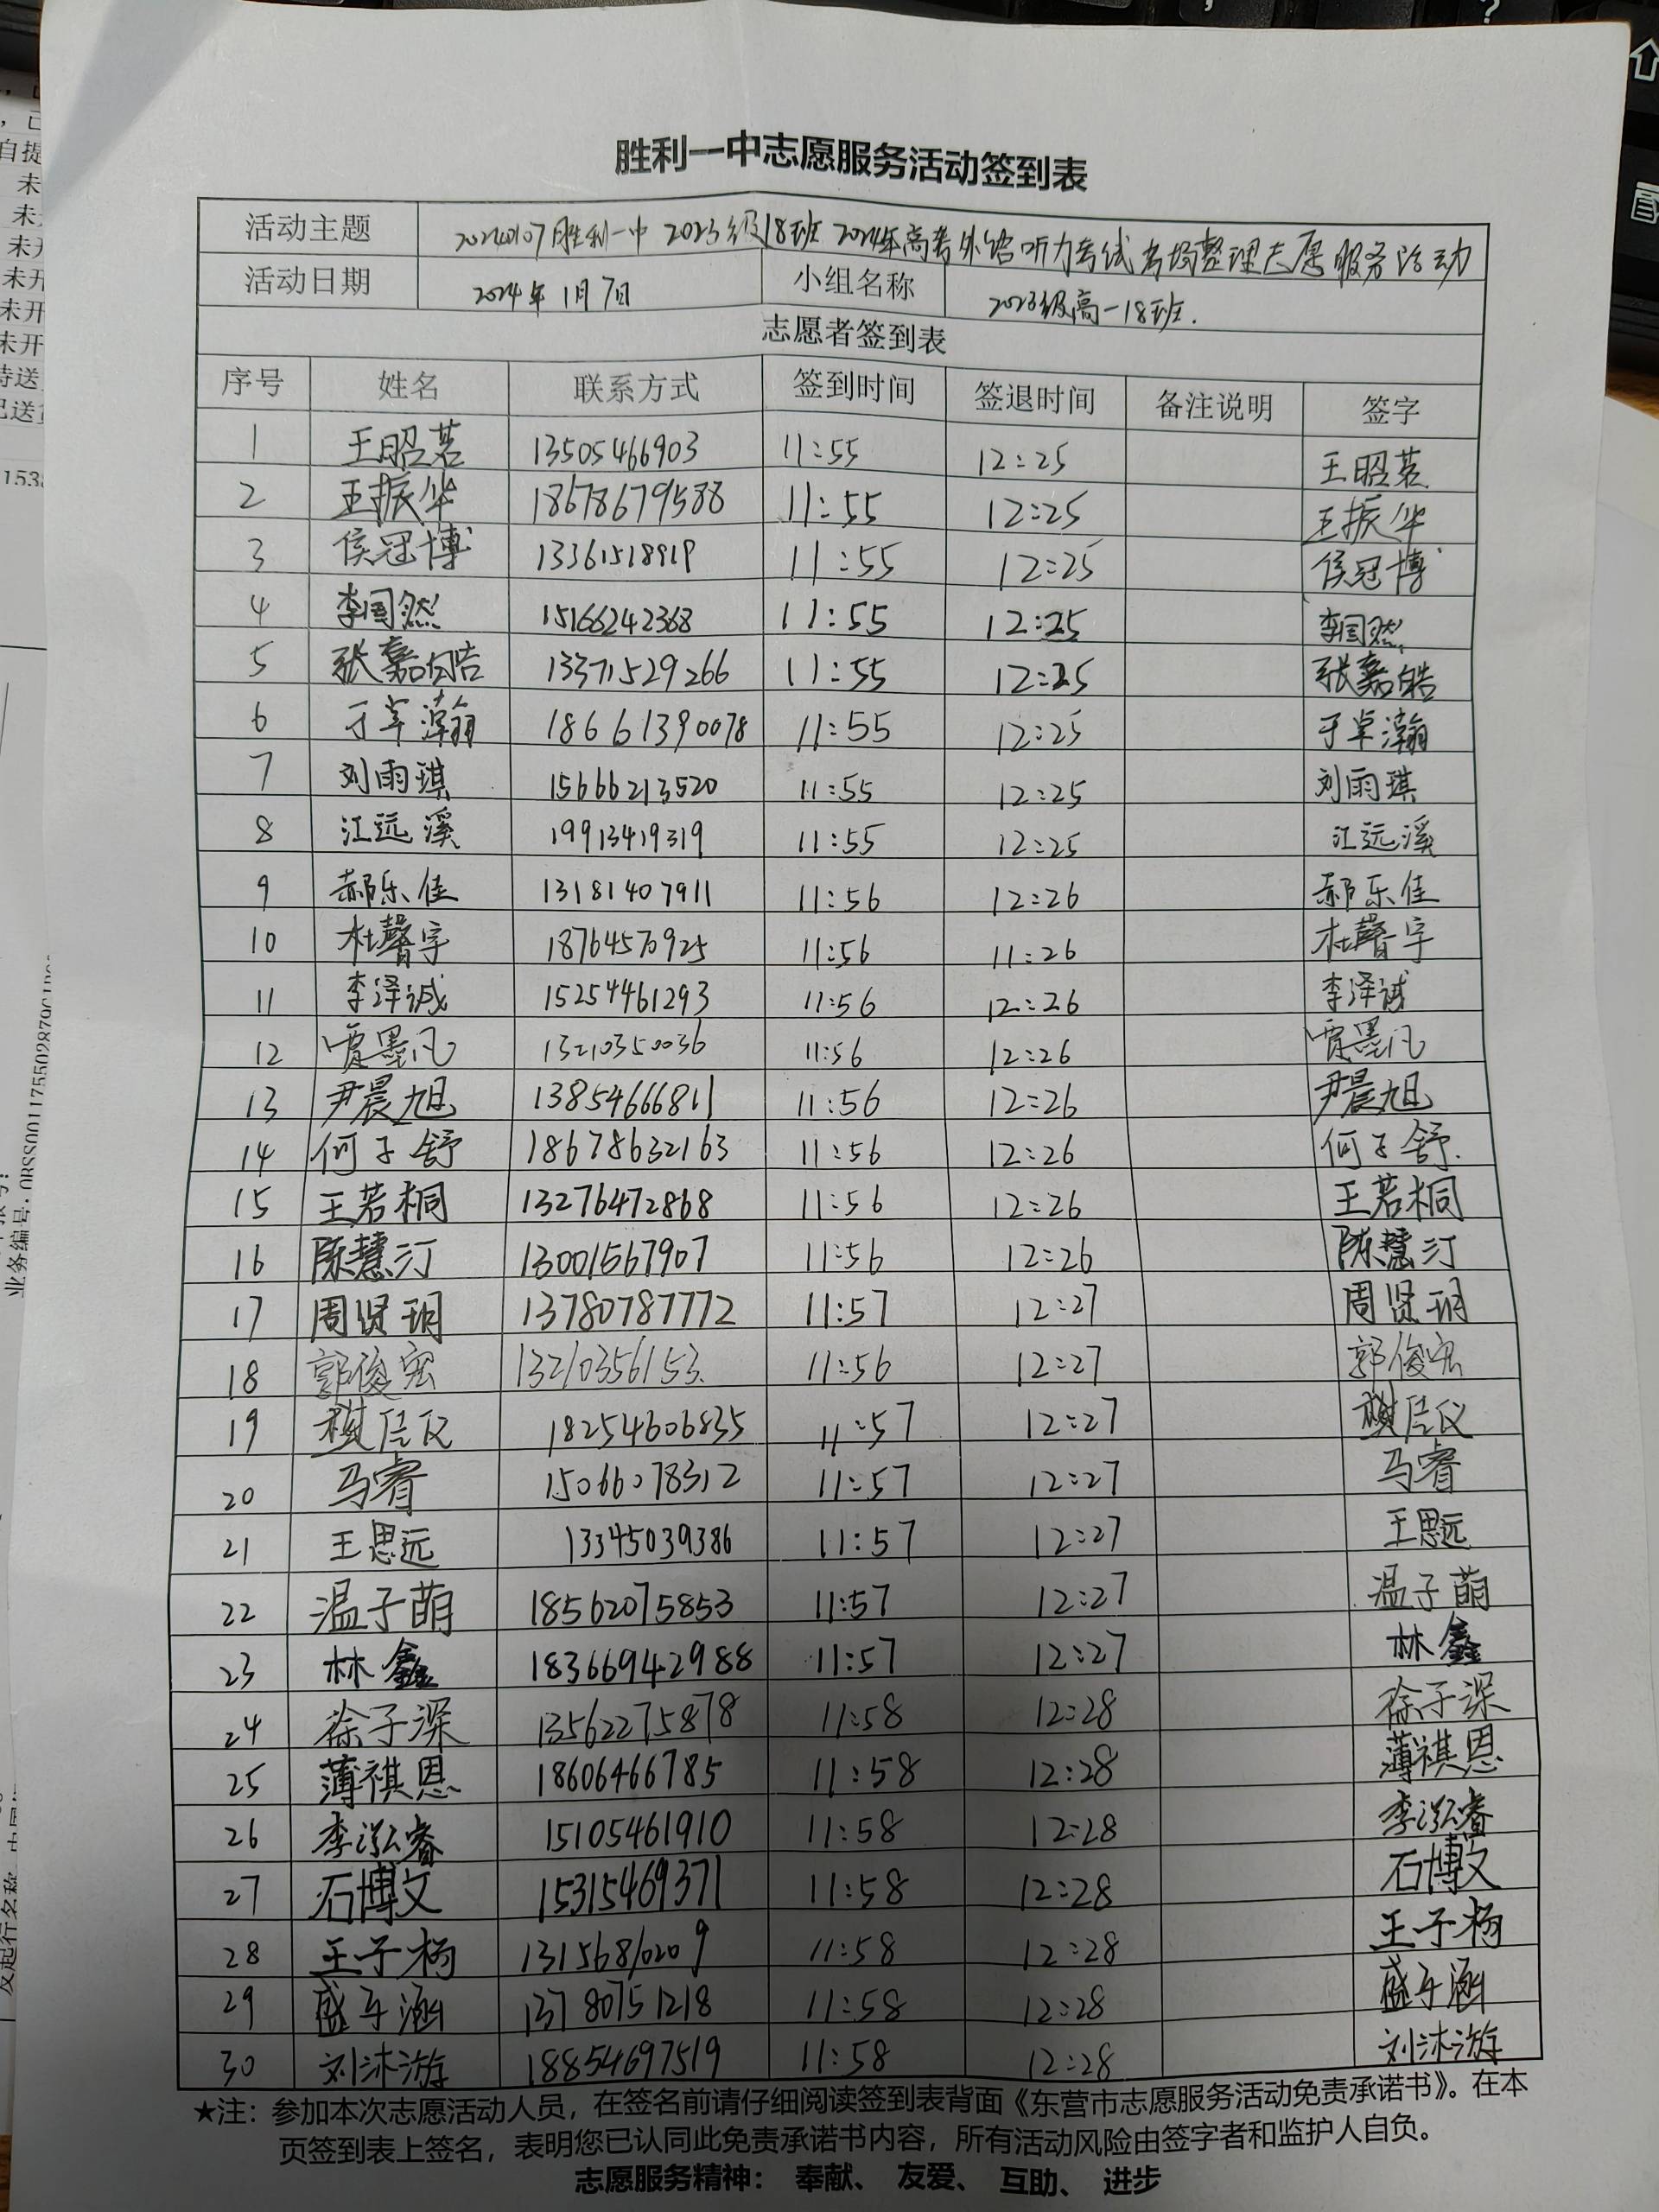 胜利一中志愿服务活动签到表
活动主题 20240107胜利一中2023级18班2024年高考外语听力考试考场整理志愿服务活动
活动日期 2024年1月7日 小组名称 2023级高一18班.
志愿者签到表
序号 姓名 联系方式 签到时间 签退时间 备注说明 签字
1 王昭茗 13505466903 11:55 12:25 王昭茗
2 王振华 18678679588 11:55 12:25 王振华
3 侯冠博 13361518919 11:55 12:25 侯冠博
4 李国然 15166242368 11:55 12:25 李国然
5 张嘉皓 13371529266 11:55 12:25 张嘉皓
6 于卓瀚 18661390078 11:55 12:25 于卓瀚
7 刘雨琪 15666213520 11:55 12:25 刘雨琪
8 江远溪 19913419319 11:55 12:25 江远溪
9 郝乐佳 13181407911 11:56 12:26 郝乐佳
10 杜馨宇 18764570925 11:56 11:26 杜馨宇
11 李泽诚 15254461293 11:56 12:26 李泽诚
12 贾墨凡 13210350036 11:56 12:26 贾墨凡
13 尹晨旭 13854666811 11:56 12:26 尹晨旭
14 何子舒 18678632163 11:56 12:26 何子舒.
15 王若桐 13276472868 11:56 12:26 王若桐
16 陈慧汀 13001567907 11:56 12:26 陈慧汀
17 周贤玥 13780787772 11:57 12:27 周贤玥
18 郭俊宏 13210356153. 11:56 12:27 郭俊宏
19 18254606835 11:57 12:27
20 马睿 15066078312 11:57 12:27 马睿
21 王思远 13345039386 11:57 12:27 王思远
22 温子萌 18562075853 11:57 12:27 温子萌
23 林鑫 18366942988 11:57 12:27 林鑫
24 徐子深 13562275878 11:58 12:28 徐子深
25 薄祺恩 18606466785 11:58 12:28 薄祺恩
26 李泓睿 15105461910 11:58 12:28 李泓睿
27 石博文 15315469371 11:58 12:28 石博文
28 王子杨 13156810209 11:58 12:28 王子杨
29 盛子涵 13780751218 11:58 12:28 盛子涵
30 刘沐游 18854697519 11:58 12:28 刘沐游
★注：参加本次志愿活动人员，在签名前请仔细阅读签到表背面《东营市志愿服务活动免责承诺书》。在本
页签到表上签名，表明您已认同此免责承诺书内容，所有活动风险由签字者和监护人自负。
志愿服务精神： 奉献、 友爱、 互助、 进步